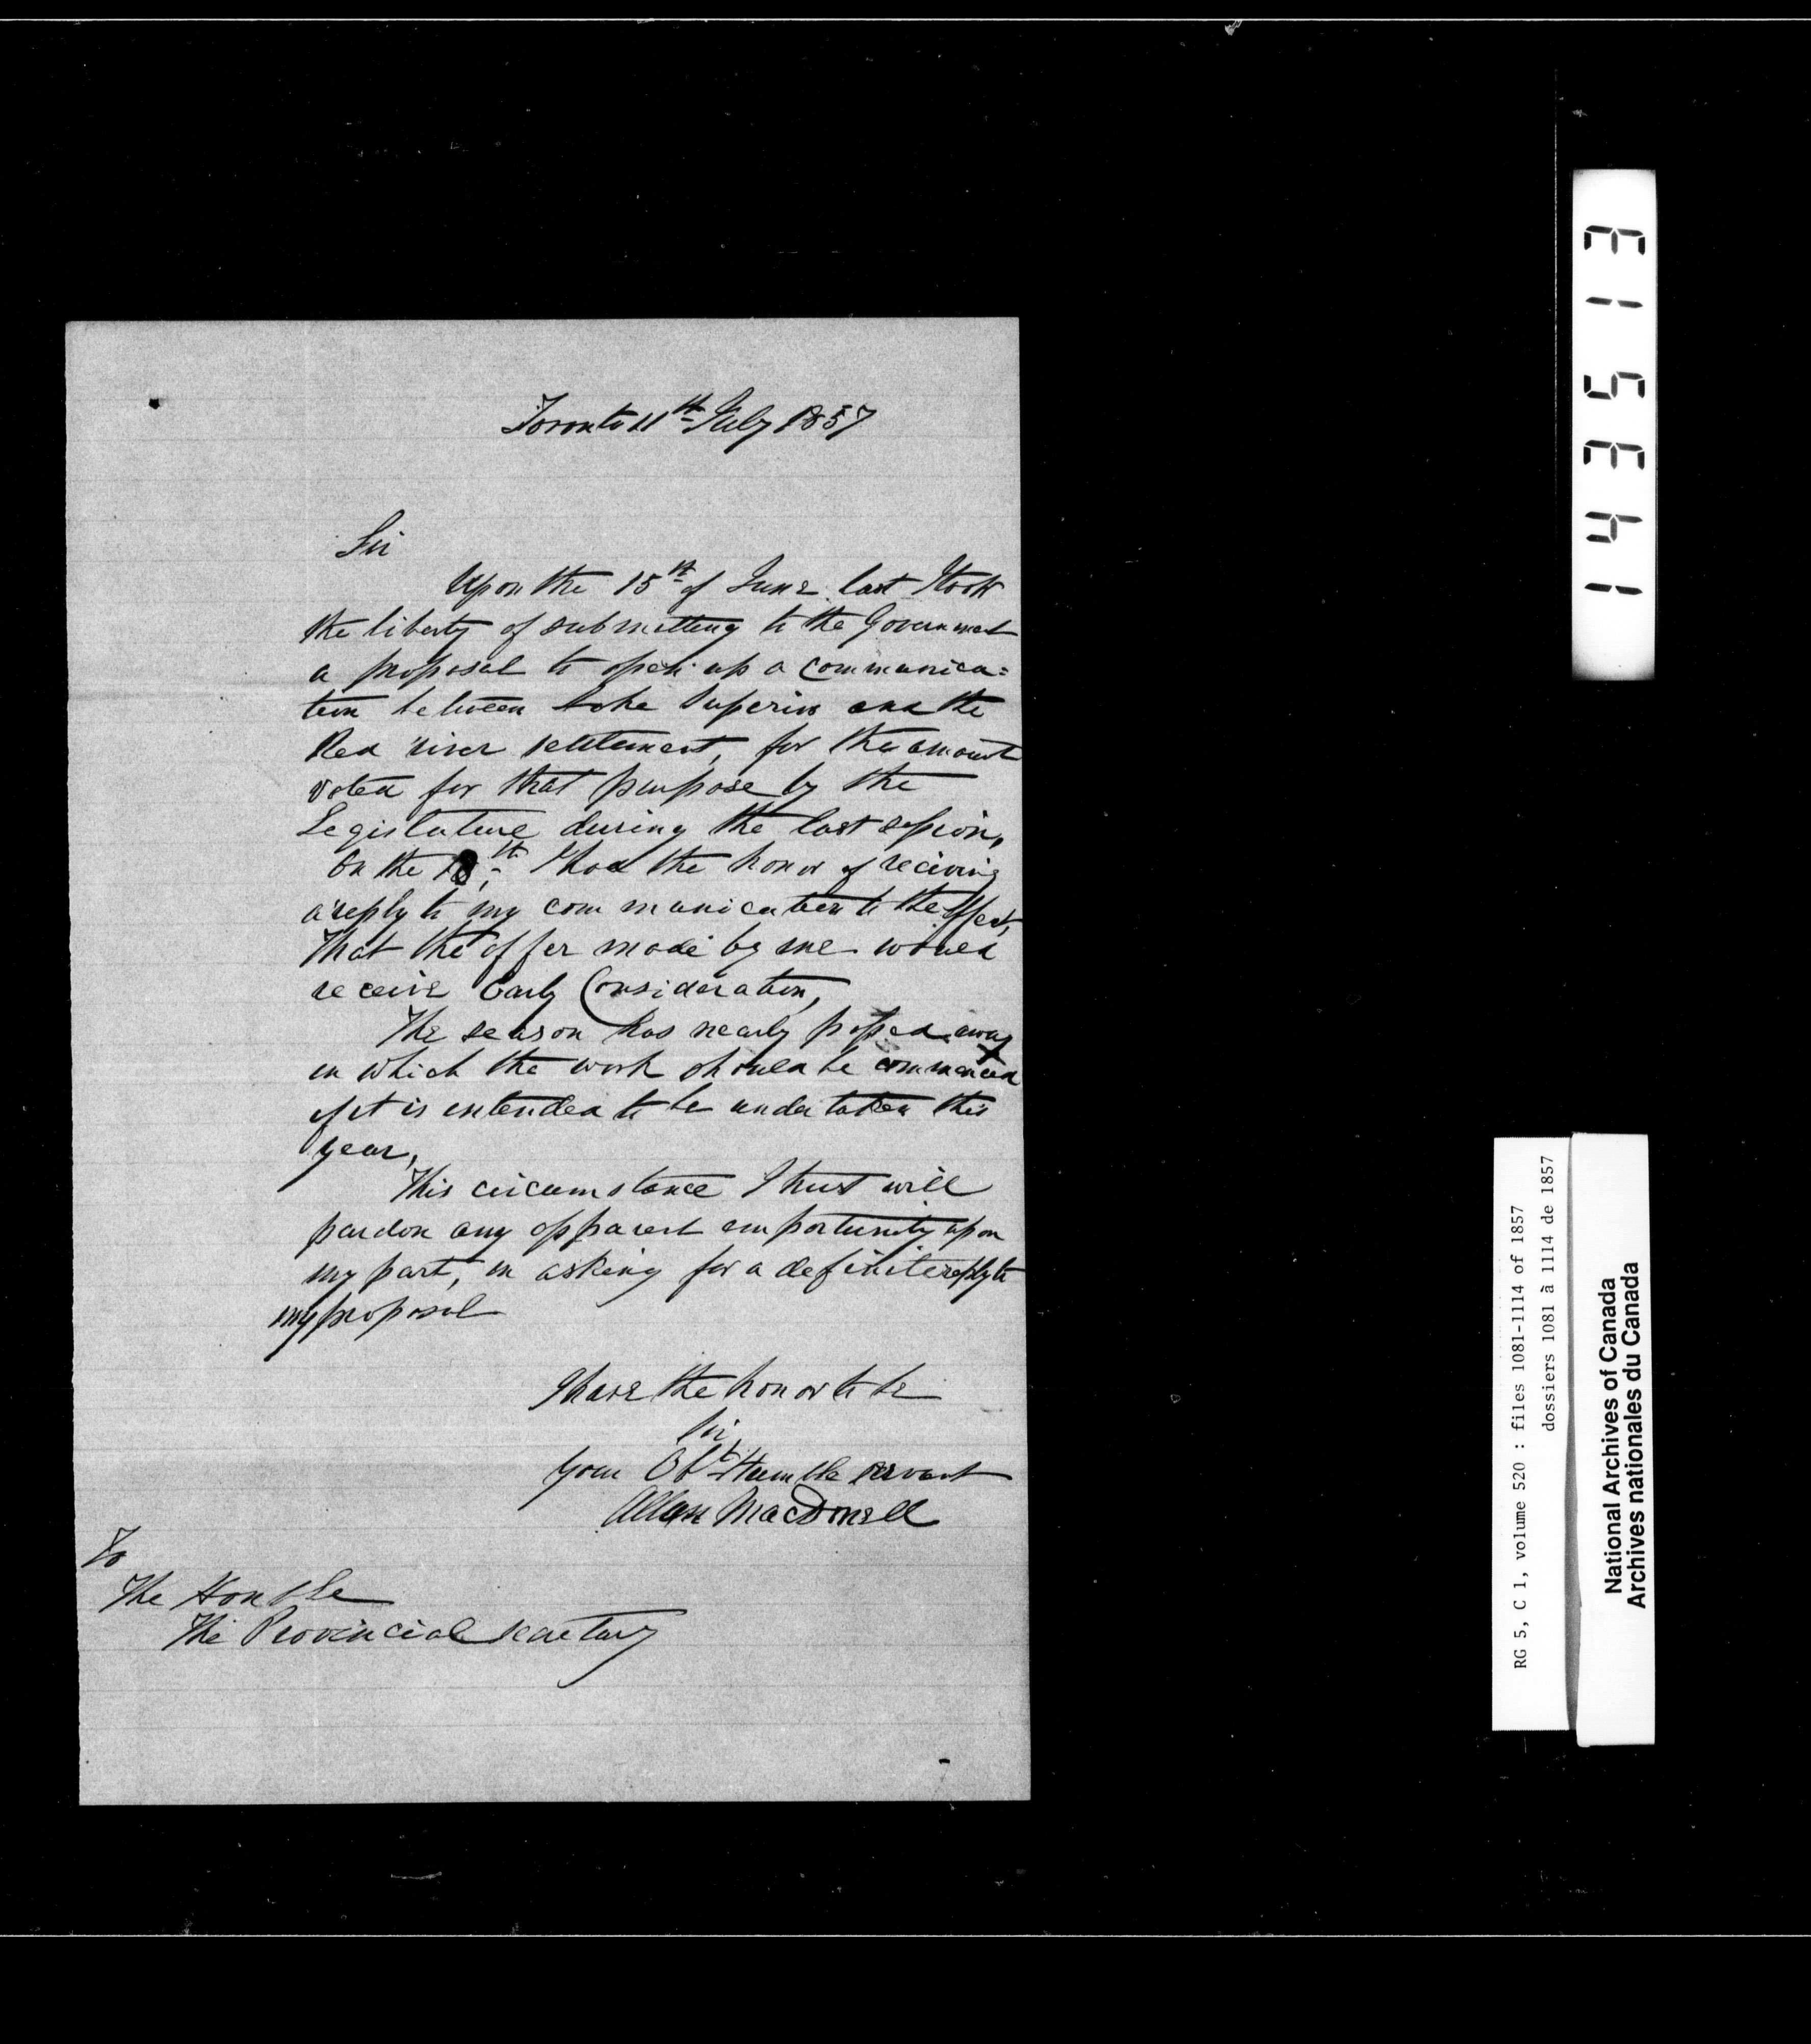 Toronto 11th July 1857
Sir
Upon the 15th of June last I took
the liberty of submitting to the Government
a proposal to open up a communica=
tion between Lake Superior and the
Red river settlement, for the amount
voted for that purpose by the
Legislature during the last session,
On the 18th I had the honor of reciving
a reply to my communication to the effect,
That the offer made by me would
receive Early Consideration,
The season has nearly passed away
in which the work should be commenced
if it is intended to be undertaken this
year,
This circumstance I trust will
pardon any apparent importunity upon
my part, in asking for a definite reply to
my proposal
I have the honor to be
Sir,
your Obt Humble servant
Allan MacDonell
To
The Honble
The Provincial Secretary
143513
RG 5, C 1, volume 520 : files 1081-1114 of 1857
dossiers 1081 à 1114 de 1857
National Archives of Canada
Archives nationales du Canada